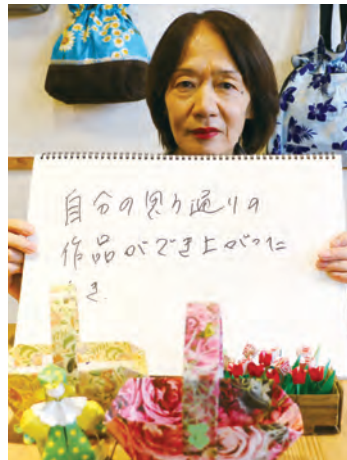 自分の思い通りの
作品ができ上がった
とき.